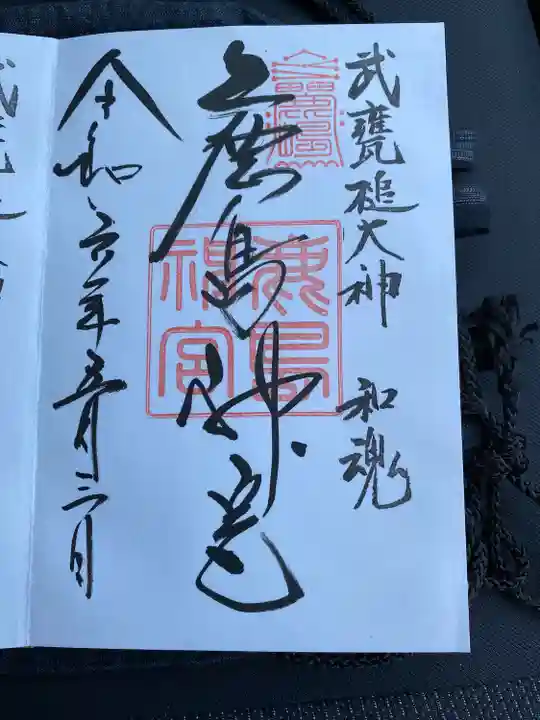 武甕槌大神 和魂
鹿島神宮
鹿島
神宮
令和六年五月三日